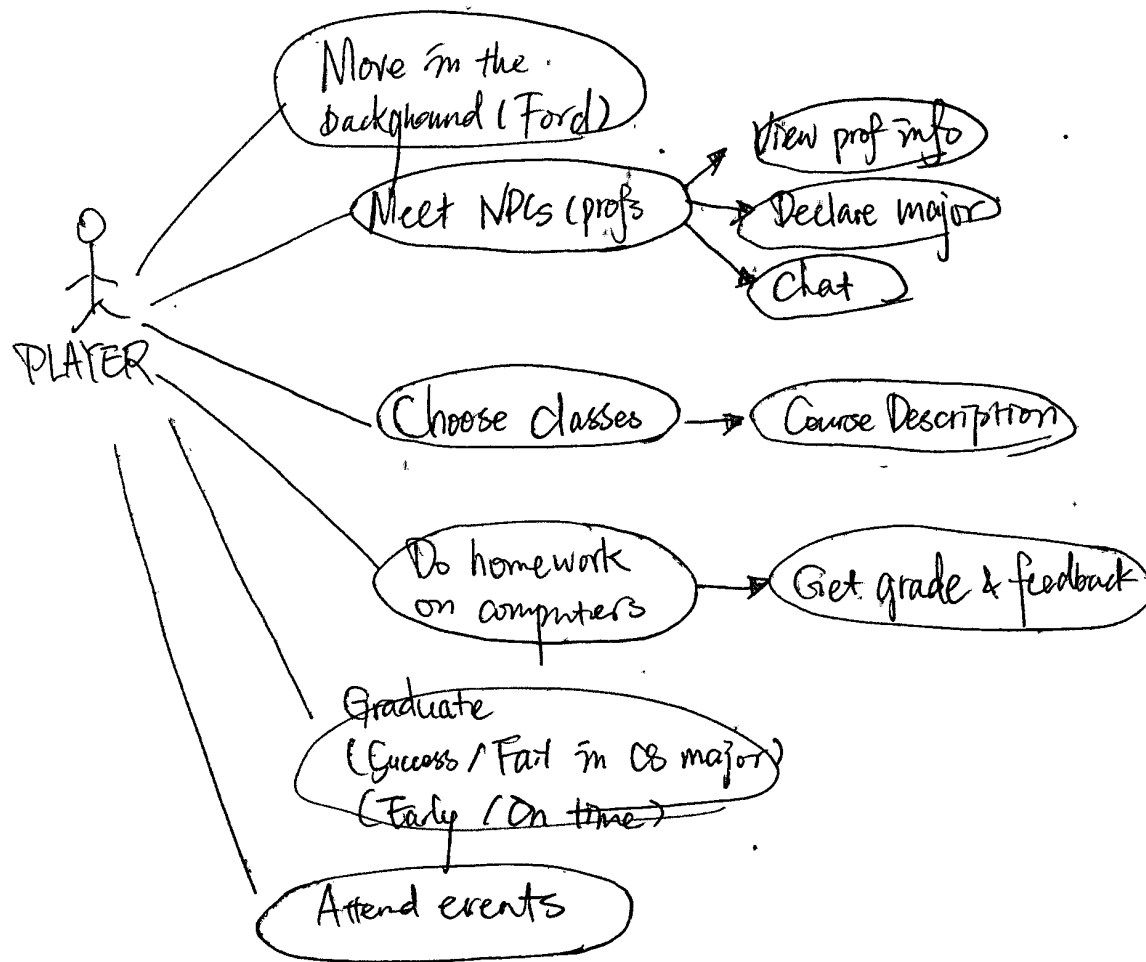 Move in the
background (Ford)
Meet NPCs (profs
View prof info
Declare major
Chat
PLAYER
Choose classes
Course Description
Do homework
on computers
Get grade & feedback
Graduate
(Success / Fail in CS major)
(Early / On time)
Attend events